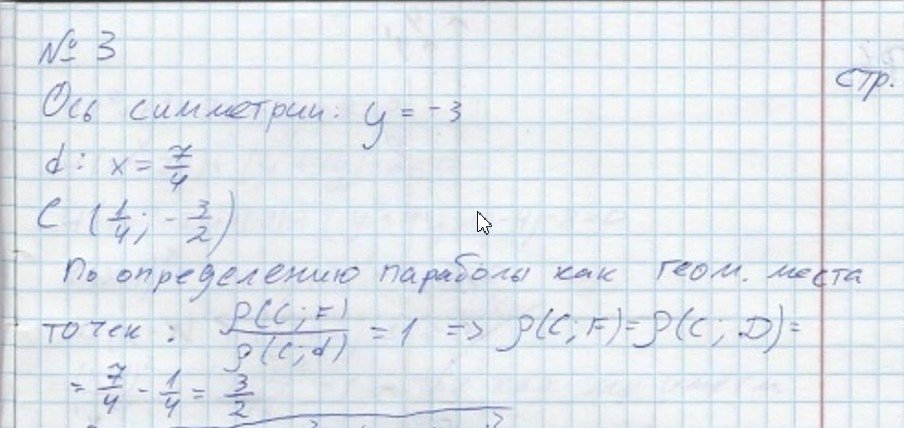 № 3
стр.
Ось симметрии: y = -3
d: x = 7/4
C (1/4; -3/2)
По определению параболы как геом. места
точек: ρ(C;F)/ρ(C;d) = 1 => ρ(C;F) = ρ(C;D) =
= 7/4 - 1/4 = 3/2